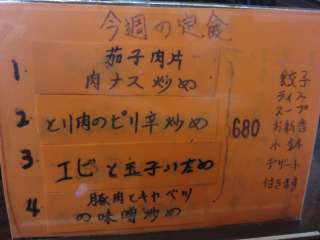 今週の定食
1. 茄子肉片
肉ナス炒め
2. とり肉のピリ辛炒め
3. エビと玉子炒め
4 豚肉とキャベツ
の味噌炒め
680
餃子
ライス
スープ
お新香
小鉢
デザート
付き